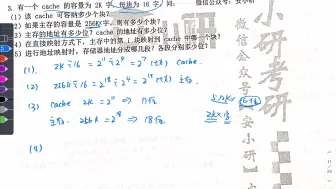 3. 有一个 cache 的容量为 2K 字，每块为 16 字，问：
(1) 该 cache 可容纳多少个块？
(2) 如果主存的容量是 256K 字，则有多少个块？
(3) 主存的地址有多少位？cache 的地址有多少位？
(4) 在直接映射方式下，主存中的第 i 块映射到 cache 中哪一个块？
(5) 进行地址映射时，存储器地址分成哪几段？各段分别多少位？
(1). 2K÷16 = 2^11÷2^4 = 2^7 (块) cache.
(2). 256K÷16 = 2^18÷2^4 = 2^14 (块) 主存.
(3) cache 2K = 2^11 ⇒ 11位.
主存. 256K = 2^18 ⇒ 18位.
(4)
2K×字
微信公众号：安小研
小研考研
微信公众号【安小研】